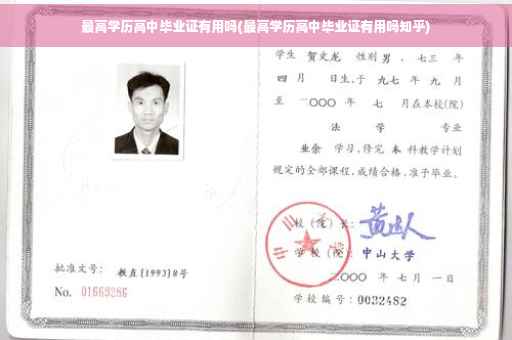 最高学历高中毕业证有用吗(最高学历高中毕业证有用吗知乎)
学生 贺文龙 性别 男 、七三 年
四 月 日生,于 九七 年 九 月
至 二〇〇〇 年 七 月在本校(院)
法 学 专业
业余 学习,修完 本 科教学计划
规定的全部课程,成绩合格,准予毕业。
校（院）长:
学校（院）: 中山大学
二〇〇〇 年 七 月 一 日
批准文号: 教直[1993]8号
No. 01669286
学校编号: 0032482